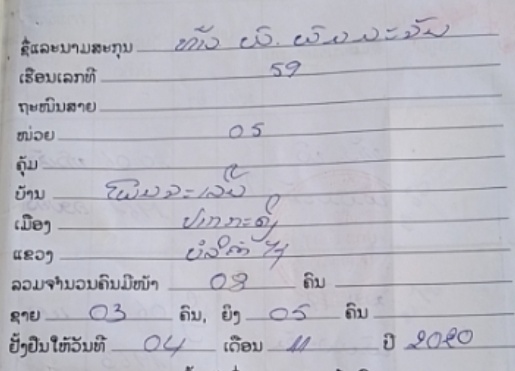 ຊື່ແລະນາມສະກຸນ ທ້າວ
ເຮືອນເລກທີ 59
ຖະໜົນສາຍ
ໜ່ວຍ 05
ຄຸ້ມ
ບ້ານ
ເມືອງ ປາກກະດິງ
ແຂວງ ບໍລິຄຳໄຊ
ລວມຈຳນວນຄົນມີໜ້າ 08 ຄົນ
ຊາຍ 03 ຄົນ, ຍິງ 05 ຄົນ
ຢັ້ງຢືນໃຫ້ວັນທີ 04 ເດືອນ 11 ປີ 2020